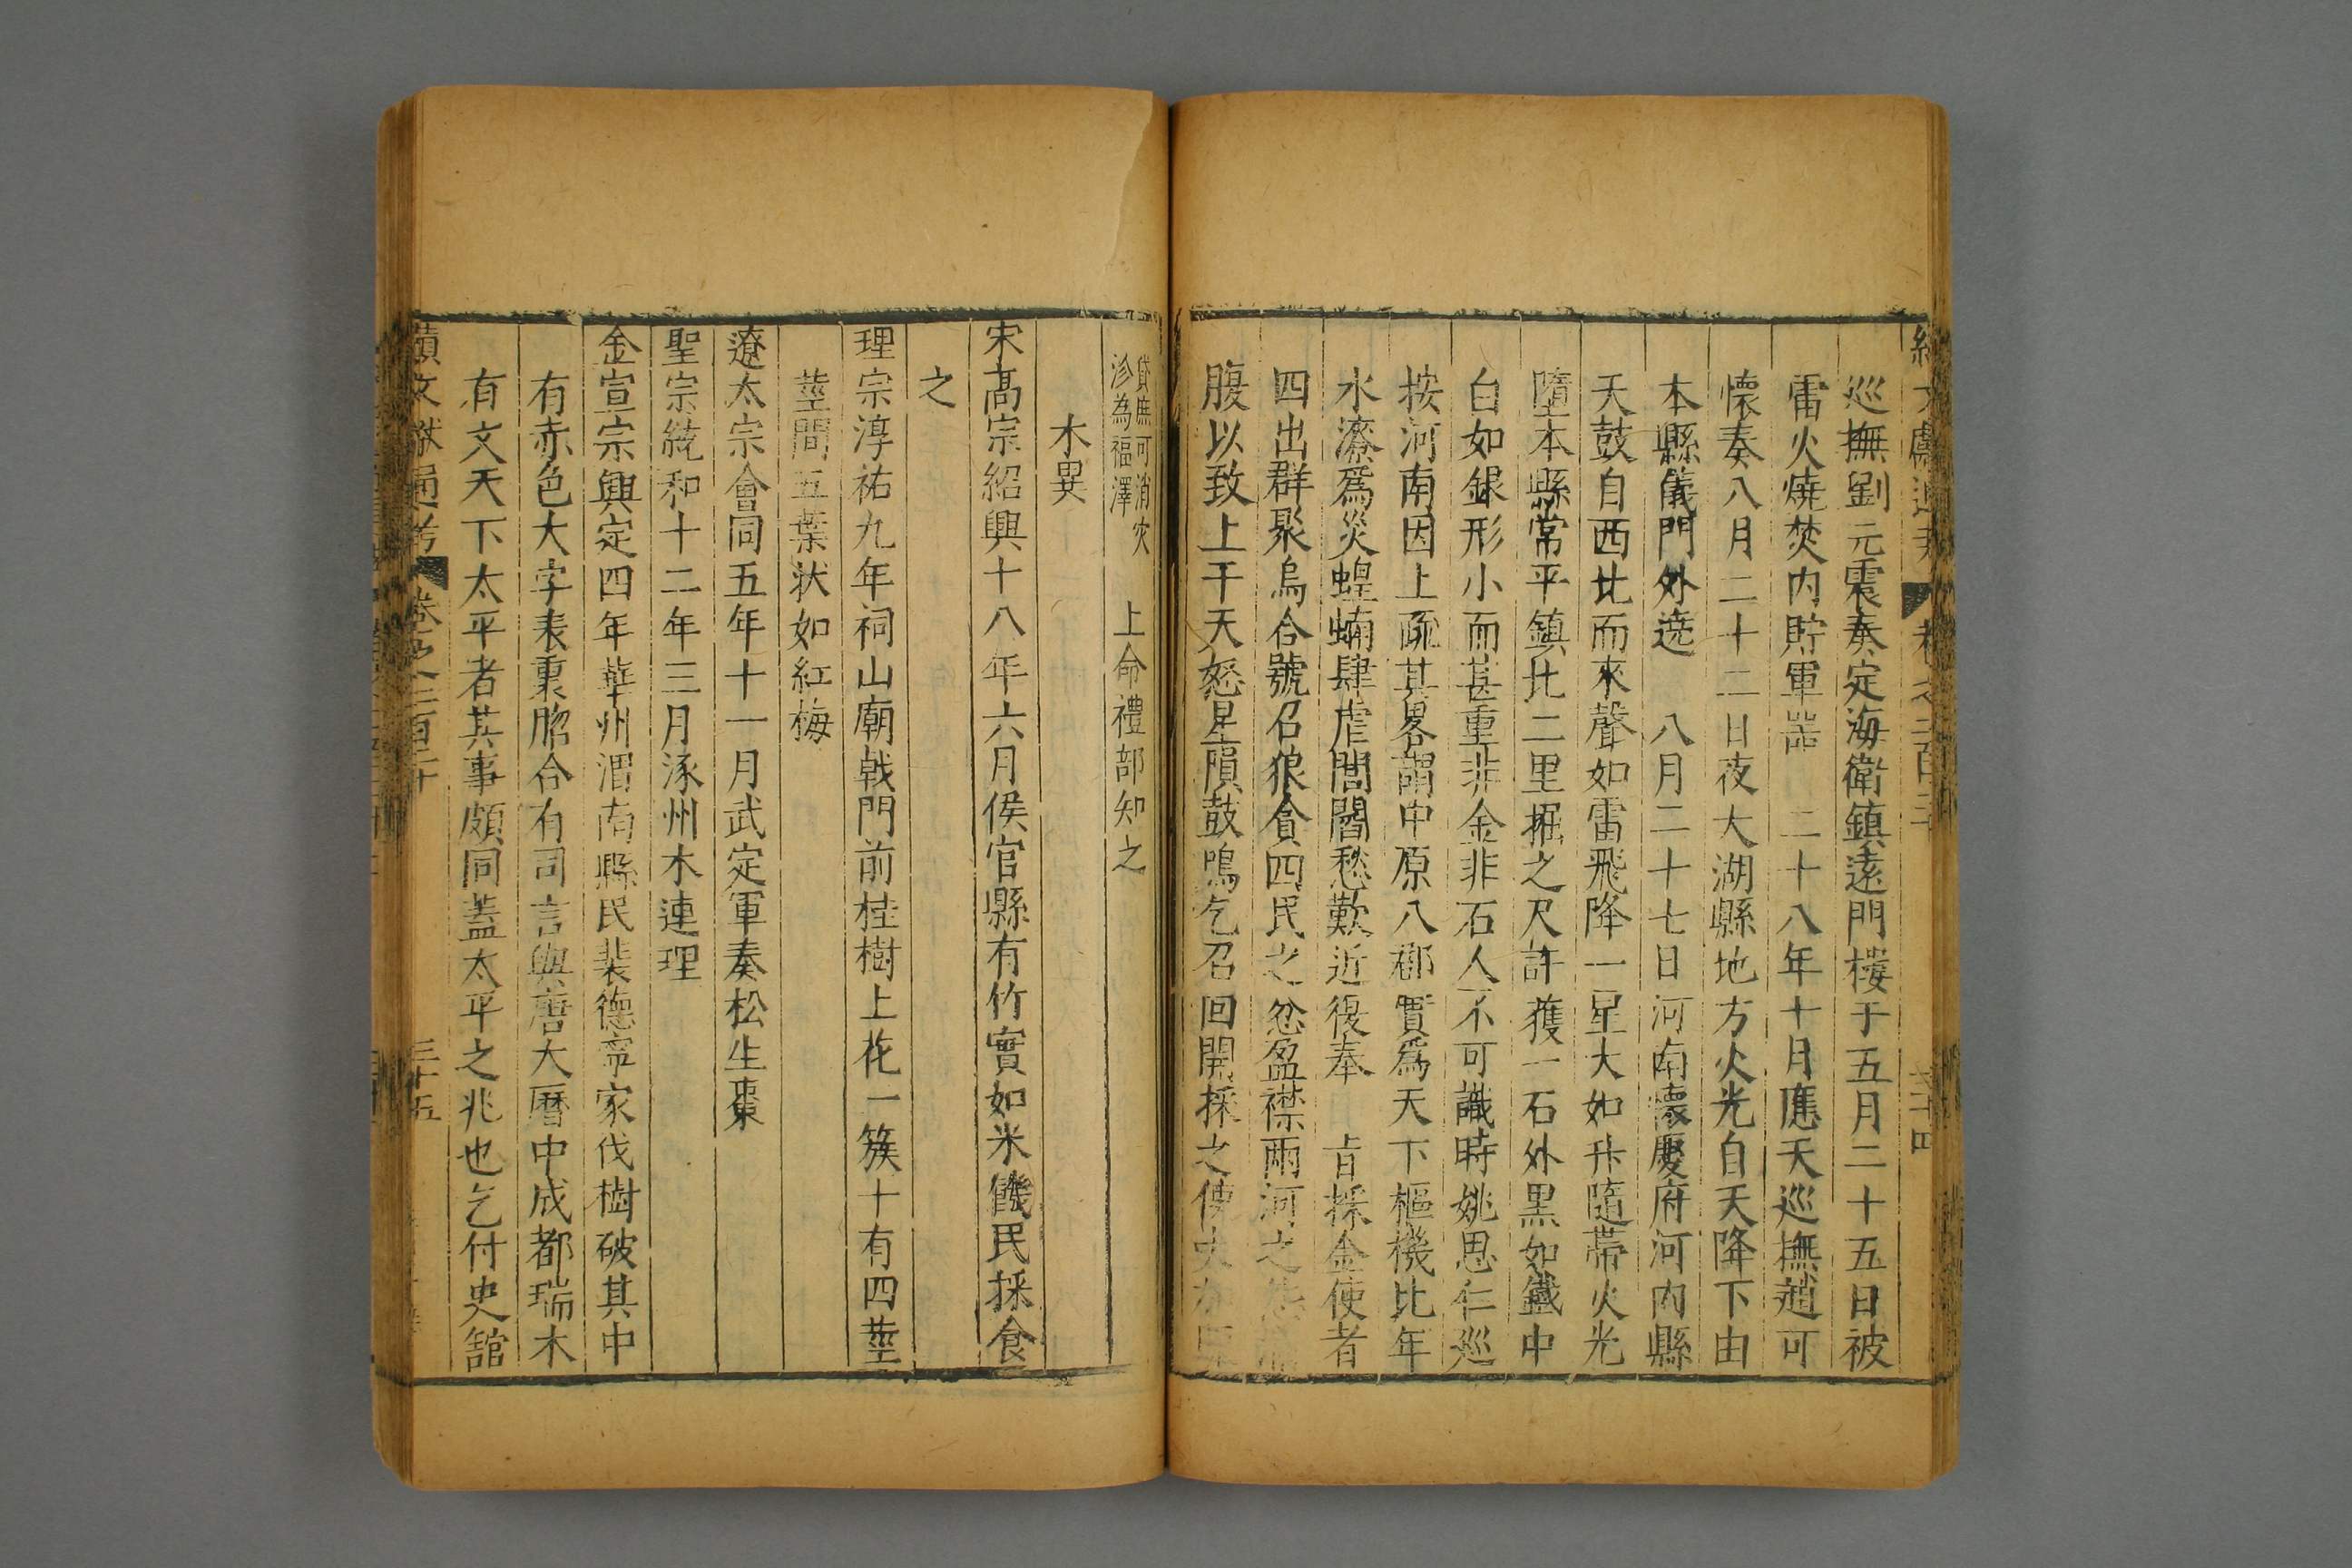 巡撫劉元震奏定海衛鎮遠門樓于五月二十五日被
雷火燒焚内貯軍噐　二十八年十月應天巡撫趙可
懷奏八月二十二日夜大湖縣地方火光自天降下由
本縣儀門外遶　八月二十七日河南懷慶府河内縣
天鼓自西北而來聲如雷飛降一星大如升隨帶火光
墮本縣常平鎮北二里掘之尺許獲一石外黒如鐵中
白如銀形小而甚重非金非石人不可識時姚思仁巡
按河南因上疏其畧謂中原八郡實爲天下樞機比年
水潦爲災蝗蝻肆虐閭閻愁歎近復奉　㫖採金使者
四出群聚烏合號召狼貪四民之忿盈襟兩河之
腹以致上干天怒星隕鼓鳴乞召回開採之使
貸庶可消灾
沴為福澤　上命禮部知之
木異
宋髙宗紹興十八年六月侯官縣有竹實如米饑民採食
之
理宗淳祐九年祠山廟戟門前桂樹上花一簇十有四莖
莖間五葉状如紅梅
遼太宗會同五年十一月武定軍奏松生棗
聖宗統和十二年三月涿州木連理
金宣宗興定四年華州渭南縣民裴德寧家伐樹破其中
有赤色大字表裏脗合有司言與唐大曆中成都瑞木
有文天下太平者其事頗同蓋太平之兆也乞付史舘
續文獻通考　卷之二百二十　三十五